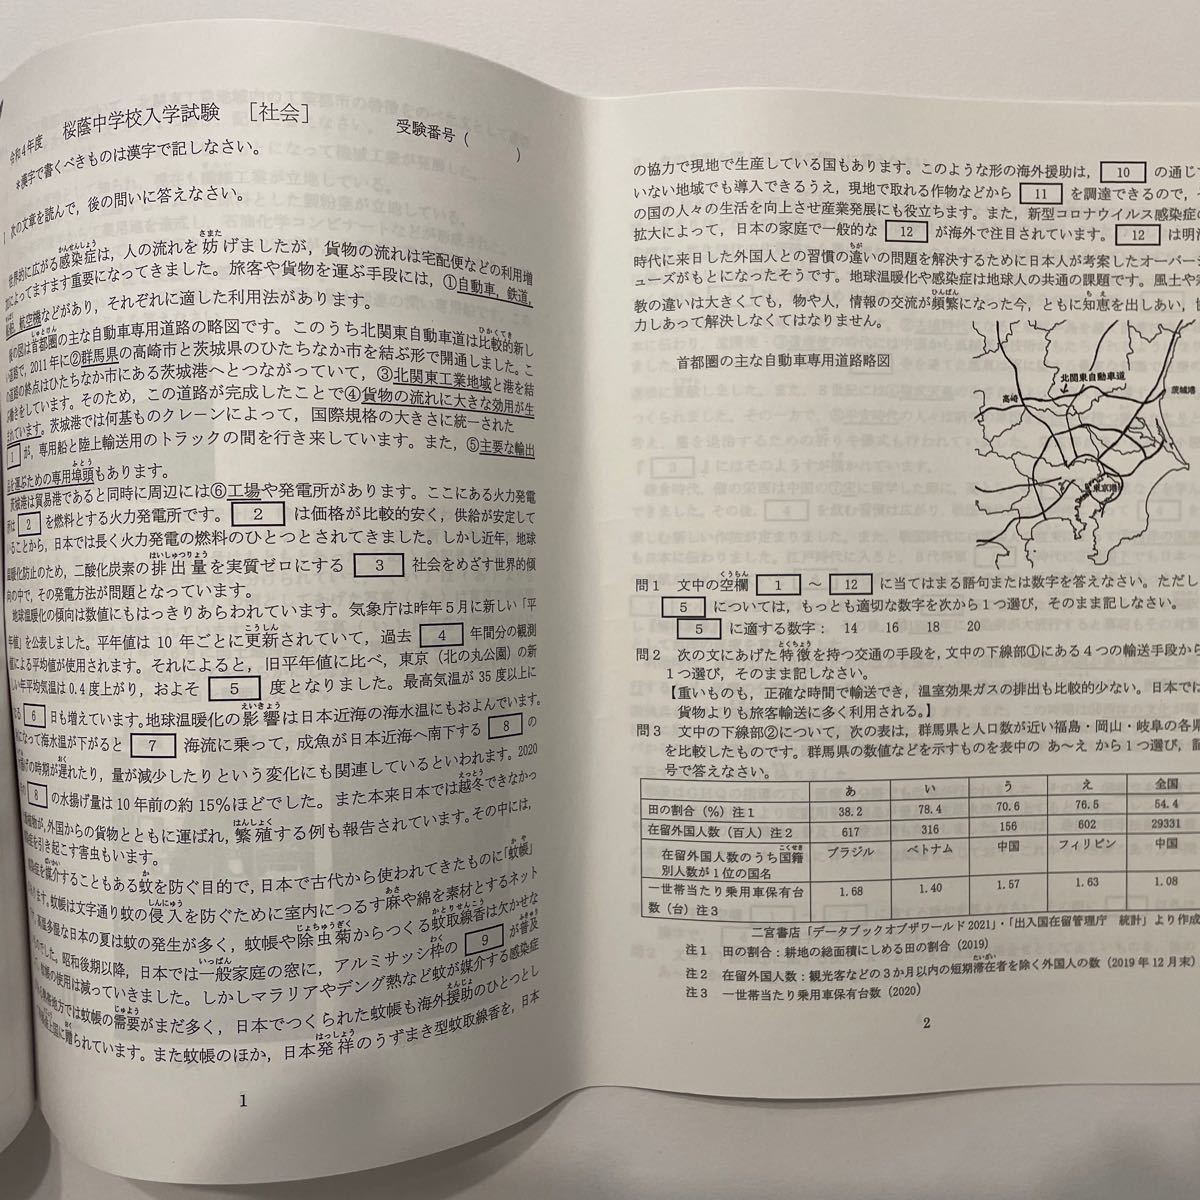 令和4年度 桜蔭中学校入学試験 ［社会］
受験番号（　　）
＊漢字で書くべきものは漢字で記しなさい。
次の文章を読んで，後の問いに答えなさい。
世界的に広がる感染症は，人の流れを妨げましたが，貨物の流れは宅配便などの利用増
によってますます重要になってきました。旅客や貨物を運ぶ手段には，①自動車，鉄道，
航空機などがあり，それぞれに適した利用法があります。
の図は首都圏の主な自動車専用道路の略図です。このうち北関東自動車道は比較的新し
い道路で，2011年に②群馬県の高崎市と茨城県のひたちなか市を結ぶ形で開通しました。
の道路の終点はひたちなか市にある茨城港へとつながっていて，③北関東工業地域と港を結
ぶ働きをしています。そのため，この道路が完成したことで④貨物の流れに大きな効用が生
まれています。茨城港では何基ものクレーンによって，国際規格の大きさに統一された
1 が，専用船と陸上輸送用のトラックの間を行き来しています。また，⑤主要な輸出
品を運ぶための専用埠頭もあります。
茨城港は貿易港であると同時に周辺には⑥工場や発電所があります。ここにある火力発電
所は 2 を燃料とする火力発電所です。 2 は価格が比較的安く，供給が安定して
いることから，日本では長く火力発電の燃料のひとつとされてきました。しかし近年，地球
暖化防止のため，二酸化炭素の排出量を実質ゼロにする 3 社会をめざす世界的傾
向の中で，その発電方法が問題となっています。
地球温暖化の傾向は数値にもはっきりあらわれています。気象庁は昨年5月に新しい「平
年値」を公表しました。平年値は10年ごとに更新されていて，過去 4 年間分の観測
値による平均値が使用されます。それによると，旧平年値に比べ，東京（北の丸公園）の新
しい年平均気温は0.4度上がり，およそ 5 度となりました。最高気温が35度以上に
なる 6 日も増えています。地球温暖化の影響は日本近海の海水温にもおよんでいます。
になって海水温が下がると 7 海流に乗って，成魚が日本近海へ南下する 8 の
水揚げの時期が遅れたり，量が減少したりという変化にも関連しているといわれます。2020
の 8 の水揚げ量は10年前の約15％ほどでした。また本来日本では越冬できなかっ
植物が，外国からの貨物とともに運ばれ，繁殖する例も報告されています。その中には，
症を引き起こす害虫もいます。
感染症を媒介することもある蚊を防ぐ目的で，日本で古代から使われてきたものに「蚊帳」
があります。蚊帳は文字通り蚊の侵入を防ぐために室内につるす麻や綿を素材とするネット
高温多湿な日本の夏は蚊の発生が多く，蚊帳や除虫菊からつくる蚊取線香は欠かせな
いものでした。昭和後期以降，日本では一般家庭の窓に，アルミサッシ枠の 9 が普及
し，蚊帳の使用は減っていきました。しかしマラリアやデング熱など蚊が媒介する感染症
地方では蚊帳の需要がまだ多く，日本でつくられた蚊帳も海外援助のひとつとし
に贈られています。また蚊帳のほか，日本発祥のうずまき型蚊取線香を，日本
1
の協力で現地で生産している国もあります。このような形の海外援助は， 10 の通じて
いない地域でも導入できるうえ，現地で取れる作物などから 11 を調達できるので，そ
の国の人々の生活を向上させ産業発展にも役立ちます。また，新型コロナウイルス感染症の
拡大によって，日本の家庭で一般的な 12 が海外で注目されています。 12 は明治
時代に来日した外国人との習慣の違いの問題を解決するために日本人が考案したオーバーシ
ューズがもとになったそうです。地球温暖化や感染症は地球人の共通の課題です。風土や宗
教の違いは大きくても，物や人，情報の交流が頻繁になった今，ともに知恵を出しあい，協
力しあって解決しなくてはなりません。
首都圏の主な自動車専用道路略図
北関東自動車道
高崎
茨城港
東京港
問1 文中の空欄 1 ～ 12 に当てはまる語句または数字を答えなさい。ただし
5 については，もっとも適切な数字を次から1つ選び，そのまま記しなさい。
5 に適する数字： 14 16 18 20
問2 次の文にあげた特徴を持つ交通の手段を，文中の下線部①にある4つの輸送手段から
1つ選び，そのまま記しなさい。
【重いものも，正確な時間で輸送でき，温室効果ガスの排出も比較的少ない。日本では
貨物よりも旅客輸送に多く利用される。】
問3 文中の下線部②について，次の表は，群馬県と人口数が近い福島・岡山・岐阜の各県
を比較したものです。群馬県の数値などを示すものを表中の あ～え から1つ選び，記
号で答えなさい。
あ い う え 全国
田の割合（％）注1 38.2 78.4 70.6 76.5 54.4
在留外国人数（百人）注2 617 316 156 602 29331
在留外国人数のうち国籍別人数が1位の国名 ブラジル ベトナム 中国 フィリピン 中国
一世帯当たり乗用車保有台数（台）注3 1.68 1.40 1.57 1.63 1.08
二宮書店「データブックオブザワールド2021」・「出入国在留管理庁 統計」より作成
注1 田の割合：耕地の総面積にしめる田の割合（2019）
注2 在留外国人数：観光客などの3か月以内の短期滞在者を除く外国人の数（2019年12月末）
注3 一世帯当たり乗用車保有台数（2020）
2